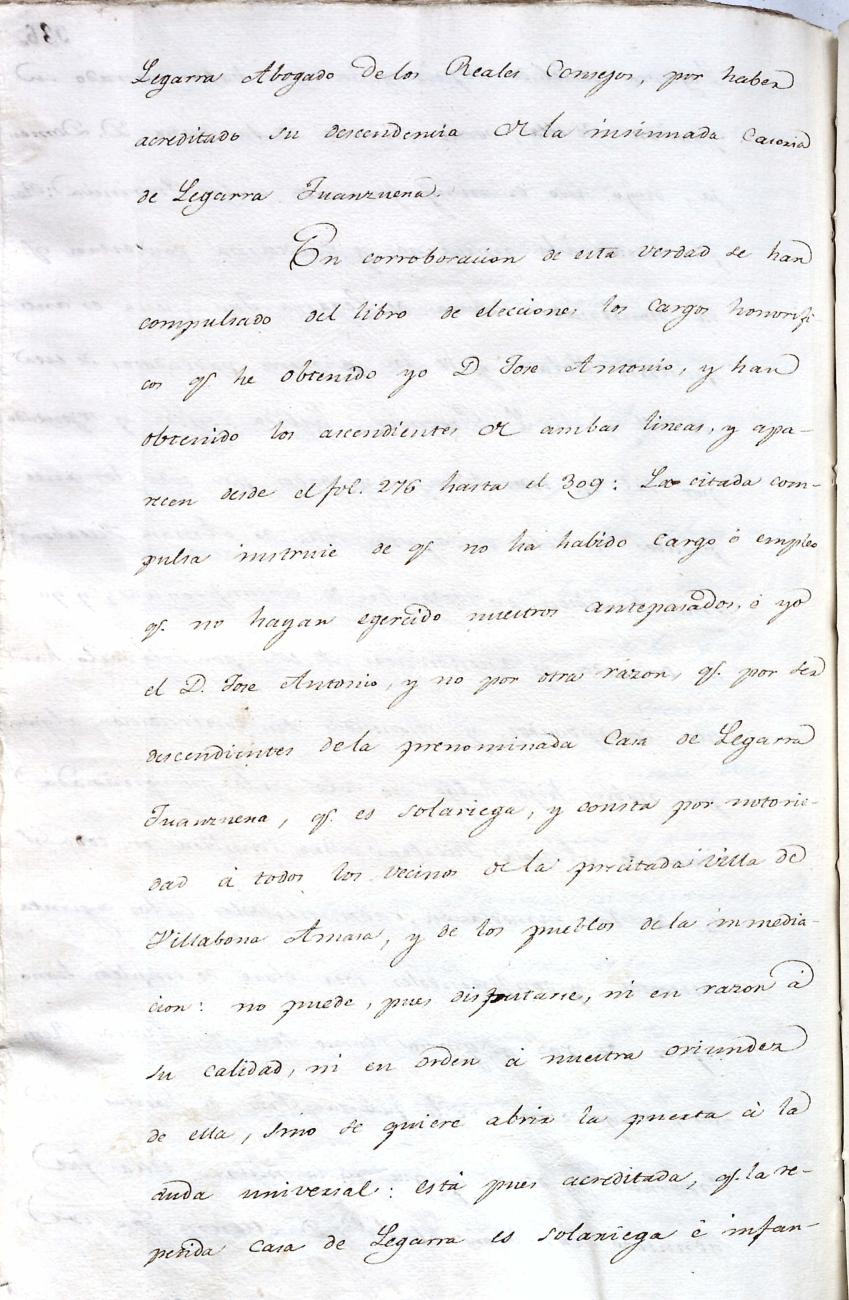 Legarra Abogado de los Reales Consejos, por haber
acreditado su descendencia de la insinuada Caseria
de Legarra Juanzuena.
En corroboracion de esta verdad se han
compulsado del libro de elecciones los cargos honorifi-
cos qe he obtenido yo D Jose Antonio, y han
obtenido los ascendientes de ambas lineas, y apa-
recen desde el fol. 276 hasta el 309: La citada com-
pulsa instruie de qe no ha habido cargo ó empleo
qe no hayan egercido nuestros antepasados, ó yo
el D. Jose Antonio, y no por otra razon, qe por ser
descendientes de la prenominada Casa de Legarra
Juanzuena, qe es solariega, y consta por notorie-
dad á todos los vecinos de la precitada Villa de
Villabona Amasa, y de los pueblos de la inmedia-
cion: no puede, pues disputarse, ni en razon á
su calidad, ni en orden á nuestra oriundez
de ella, sino se quiere abrir la puerta á la
duda universal: está pues acreditada, qe la re-
petida Casa de Legarra es solariega é infan-